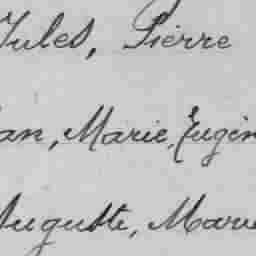 Jules, Pierre
an, Marie, Eugèn
Auguste, Marie